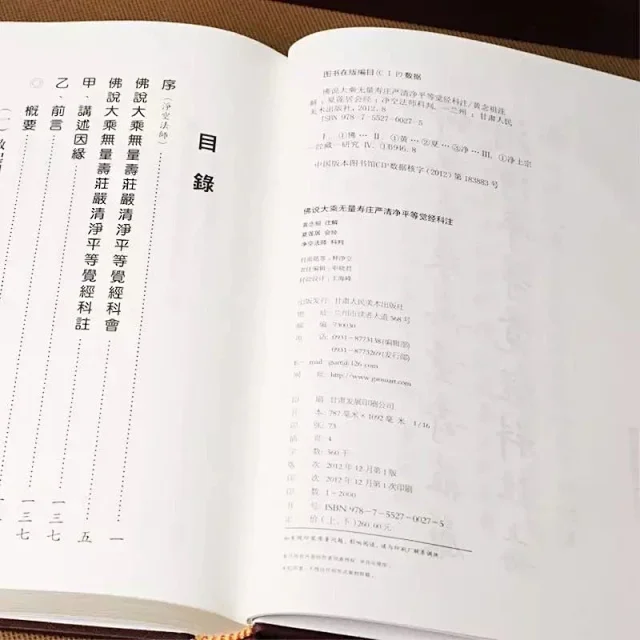 目錄
序（淨空法師）
佛說大乘無量壽莊嚴清淨平等覺經科會 一
佛說大乘無量壽莊嚴清淨平等覺經科註 五
甲、講述因緣 五
乙、前言 一三七
概要 一三七
图书在版编目(CIP)数据
佛说大乘无量寿庄严清净平等觉经科注/黄念祖注
解；夏莲居会经；净空法师科判. —兰州：甘肃人民
美术出版社, 2012.8
ISBN 978-7-5527-0027-5
Ⅰ. ①佛… Ⅱ. ①黄…②夏…③净… Ⅲ. ①净土宗
Ⅳ. ①B946.8
中国版本图书馆CIP数据核字(2012)第183883号
佛说大乘无量寿庄严清净平等觉经科注
黄念祖 注解
夏莲居 会经
净空法师 科判
出版发行：甘肃人民美术出版社
地 址：兰州市读者大道568号
邮 编：730030
电 话：0931-8773138(编辑部)
0931-8773269(发行部)
E-mail：gsart@126.com
网 址：http://www.gansuart.com
印 刷：甘肃发展印刷公司
开 本：787毫米×1092毫米 1/16
印 张：73
插 页：4
字 数：360千
版 次：2012年12月第1版
印 次：2012年12月第1次印刷
印 数：1~2000
书 号：ISBN 978-7-5527-0027-5
定 价：(上、下)260.00元